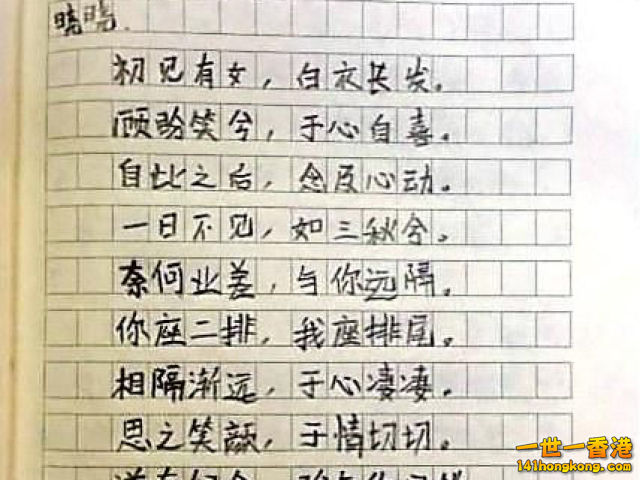 晓晓.
初见有女，白衣长发。
顾盼笑兮，于心自喜。
自此之后，念及心动。
一日不见，如三秋兮。
奈何业差，与你远隔。
你座二排，我座排尾。
相隔渐远，于心凄凄。
思之笑颜，于情切切。
一世一香港
141hongkong.com